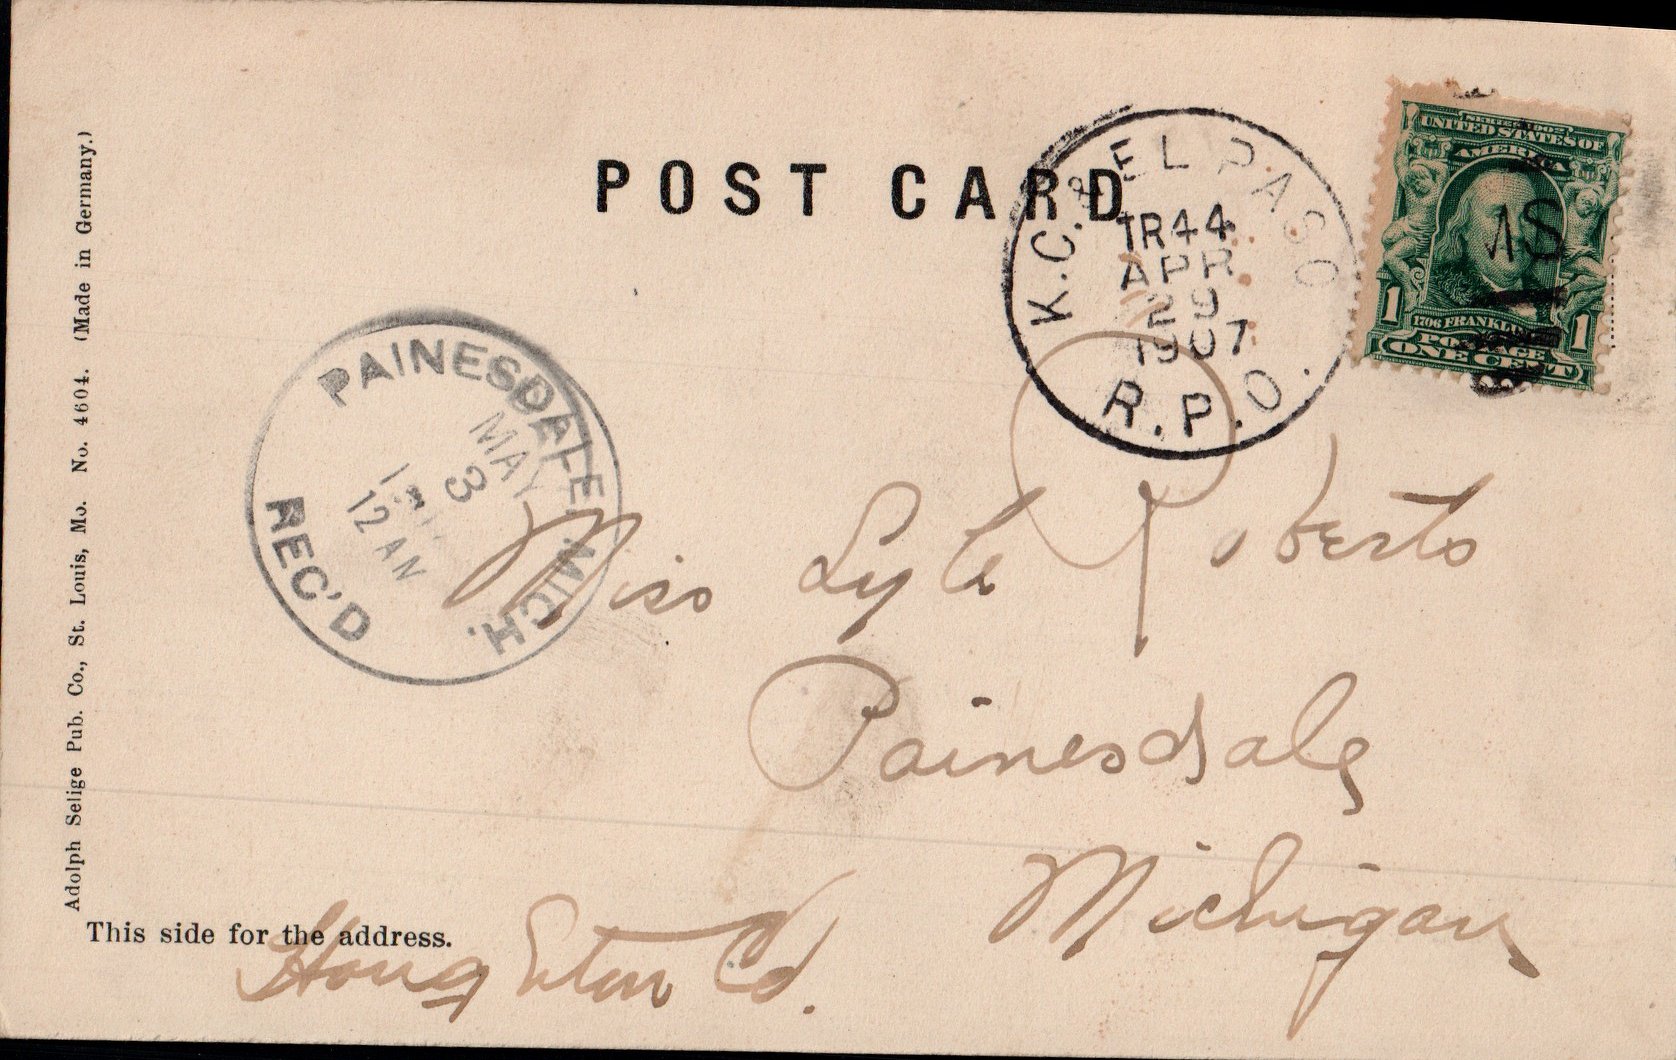 POST CARD
K.C. & EL PASO
TR44
APR
29
1907
R.P.O.
SERIES 1902
UNITED STATES OF
AMERICA
MS
1706 FRANKLIN
1 POSTAGE 1
ONE CENT
PAINESDALE MICH.
MAY
3
12 AM
REC'D
Miss Lyle Roberts
Painesdale
Michigan
Houghton Co.
This side for the address.
Adolph Selige Pub. Co., St. Louis, Mo. No. 4604. (Made in Germany.)